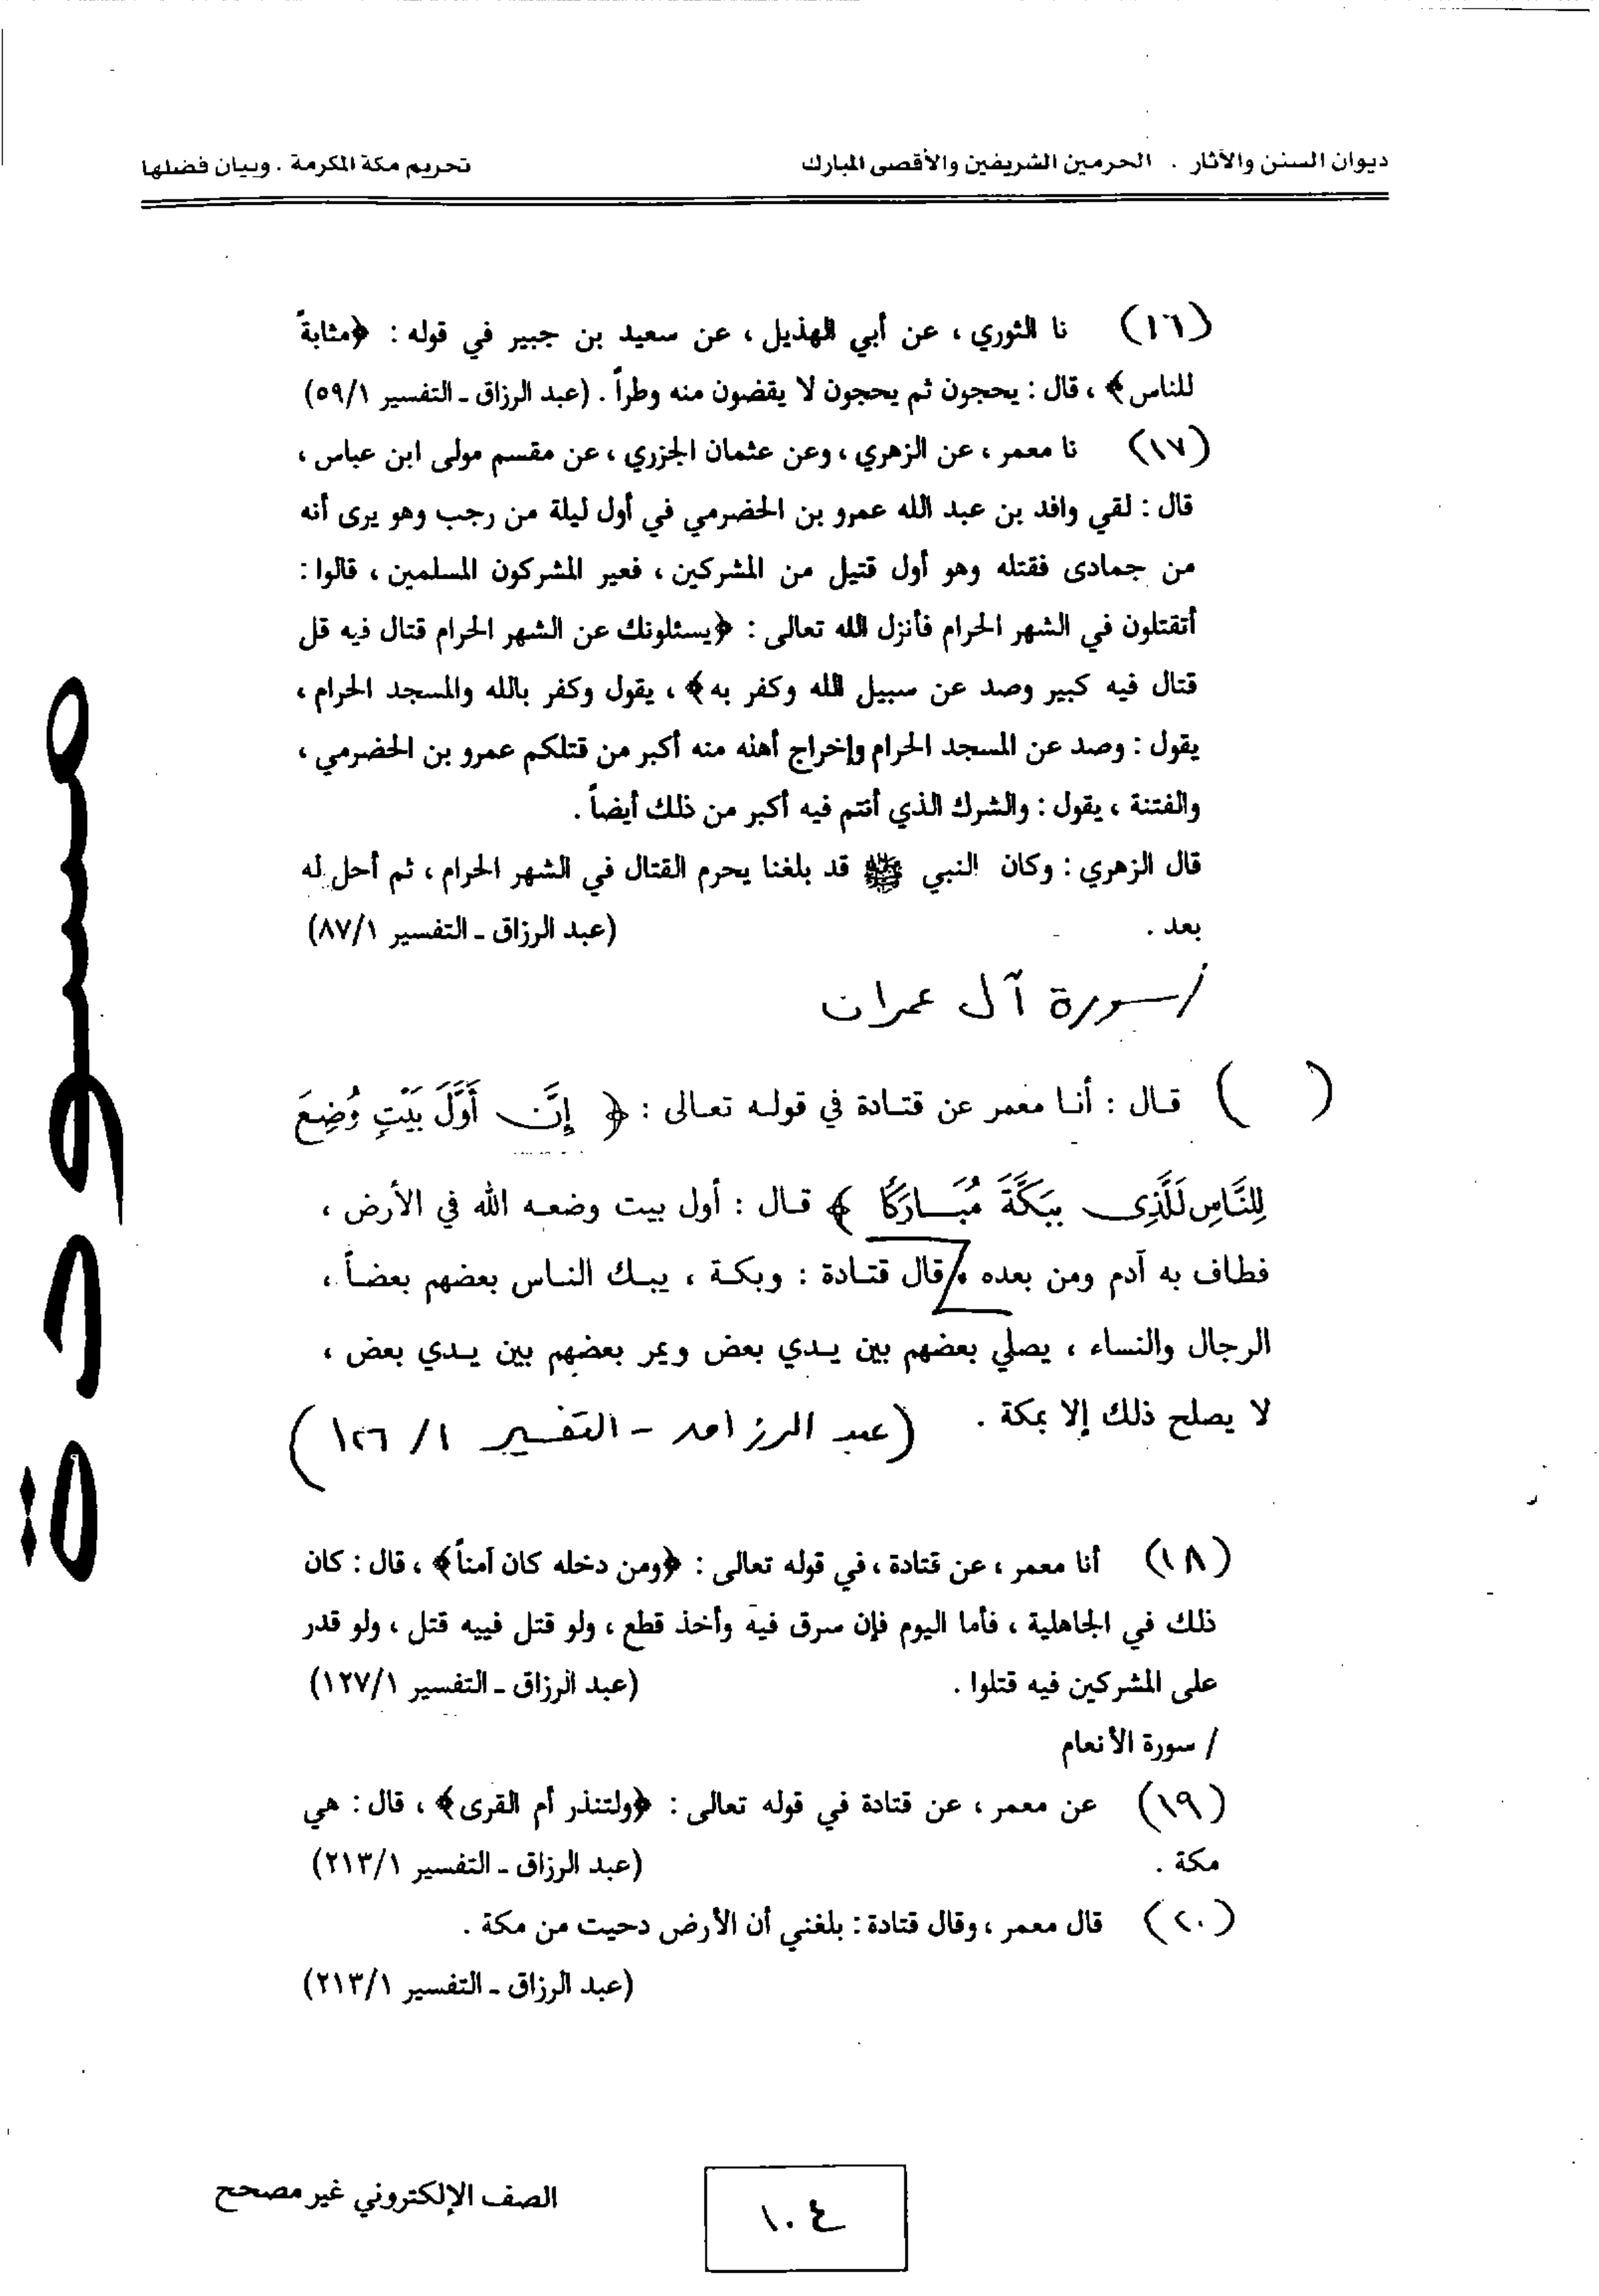 ديوان السنن والآثار . الحرمين الشريفين والأقصى المبارك تحريم مكة المكرمة . وبيان فضلها
(١٦) نا الثوري ، عن أبي الهذيل ، عن سعيد بن جبير في قوله : ﴿مثابةً
للناس﴾ ، قال : يحجون ثم يحجون لا يقضون منه وطراً . (عبد الرزاق ـ التفسير ٥٩/١)
(١٧) نا معمر ، عن الزهري ، وعن عثمان الجزري ، عن مقسم مولى ابن عباس ،
قال : لقي وافد بن عبد الله عمرو بن الحضرمي في أول ليلة من رجب وهو يرى أنه
من جمادى فقتله وهو أول قتيل من المشركين ، فعير المشركون المسلمين ، قالوا :
أتقتلون في الشهر الحرام فأنزل الله تعالى : ﴿يسئلونك عن الشهر الحرام قتال فيه قل
قتال فيه كبير وصد عن سبيل الله وكفر به﴾ ، يقول وكفر بالله والمسجد الحرام ،
يقول : وصد عن المسجد الحرام وإخراج أهله منه أكبر من قتلكم عمرو بن الحضرمي ،
والفتنة ، يقول : والشرك الذي أنتم فيه أكبر من ذلك أيضاً .
قال الزهري : وكان النبي ﷺ قد بلغنا يحرم القتال في الشهر الحرام ، ثم أحل له
بعد . (عبد الرزاق ـ التفسير ٨٧/١)
/ سورة آل عمران
( ) قال : أنا معمر عن قتادة في قوله تعالى : ﴿ إِنَّ أَوَّلَ بَيْتٍ وُضِعَ
لِلنَّاسِ لَلَّذِى بِبَكَّةَ مُبَارَكًا ﴾ قال : أول بيت وضعه الله في الأرض ،
فطاف به آدم ومن بعده . قال قتادة : وبكة ، يبك الناس بعضهم بعضاً ،
الرجال والنساء ، يصلي بعضهم بين يدي بعض ويمر بعضهم بين يدي بعض ،
لا يصلح ذلك إلا بمكة . (عبد الرزاق - التفسير ١/ ١٢٦)
(١٨) أنا معمر ، عن قتادة ، في قوله تعالى : ﴿ومن دخله كان آمناً﴾ ، قال : كان
ذلك في الجاهلية ، فأما اليوم فإن سرق فيه وأخذ قطع ، ولو قتل فييه قتل ، ولو قدر
على المشركين فيه قتلوا . (عبد الرزاق ـ التفسير ١٢٧/١)
/ سورة الأنعام
(١٩) عن معمر ، عن قتادة في قوله تعالى : ﴿ولتنذر أم القرى﴾ ، قال : هي
مكة . (عبد الرزاق ـ التفسير ٢١٣/١)
(٢٠) قال معمر ، وقال قتادة : بلغني أن الأرض دحيت من مكة .
(عبد الرزاق ـ التفسير ٢١٣/١)
مسودة
الصف الإلكتروني غير مصحح
١٠٤